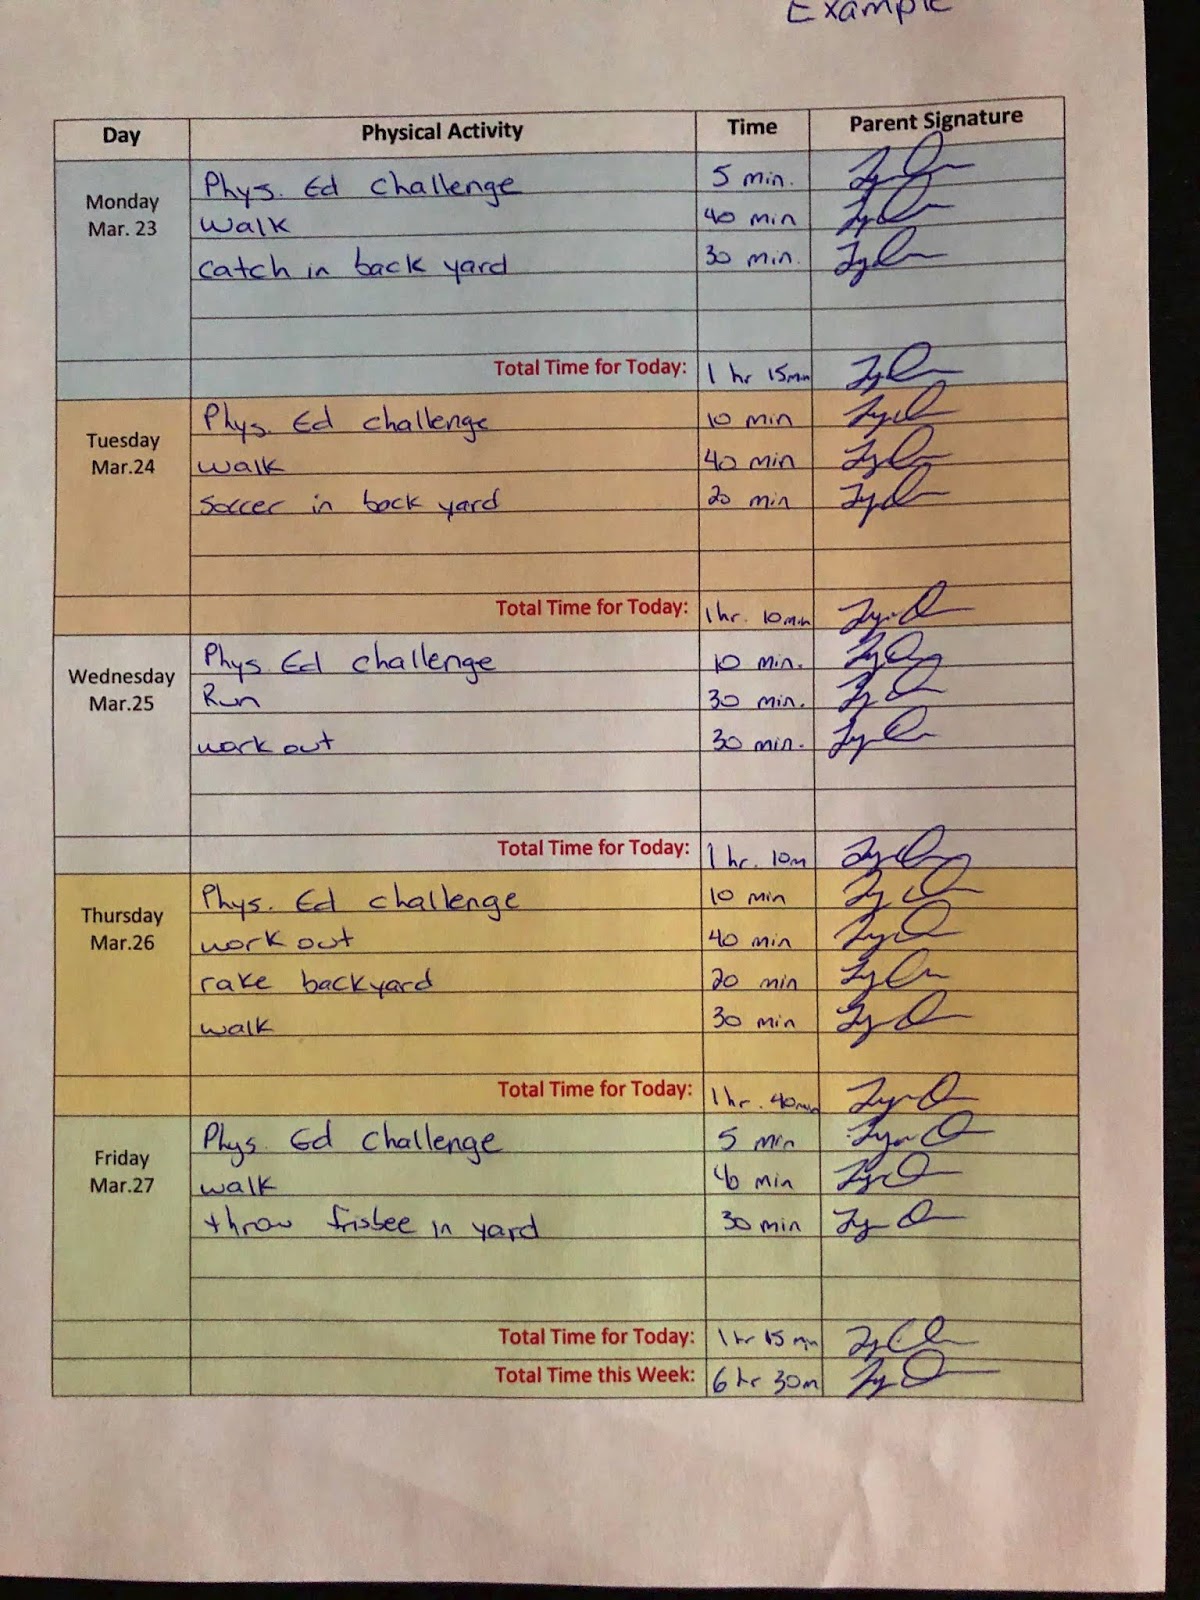 Example
Day Physical Activity Time Parent Signature
Monday
Mar. 23
Phys. Ed challenge 5 min.
walk 40 min
catch in back yard 30 min.
Total Time for Today: 1 hr 15min
Tuesday
Mar.24
Phys. Ed challenge 10 min
walk 40 min
soccer in back yard 20 min
Total Time for Today: 1hr. 10min
Wednesday
Mar.25
Phys. Ed challenge 10 min.
Run 30 min.
work out 30 min.
Total Time for Today: 1 hr. 10m
Thursday
Mar.26
Phys. Ed challenge 10 min
work out 40 min
rake backyard 20 min
walk 30 min
Total Time for Today: 1hr. 40min
Friday
Mar.27
Phys. Ed challenge 5 min
walk 40 min
throw frisbee in yard 30 min
Total Time for Today: 1 hr 15 min
Total Time this Week: 6 hr 30m